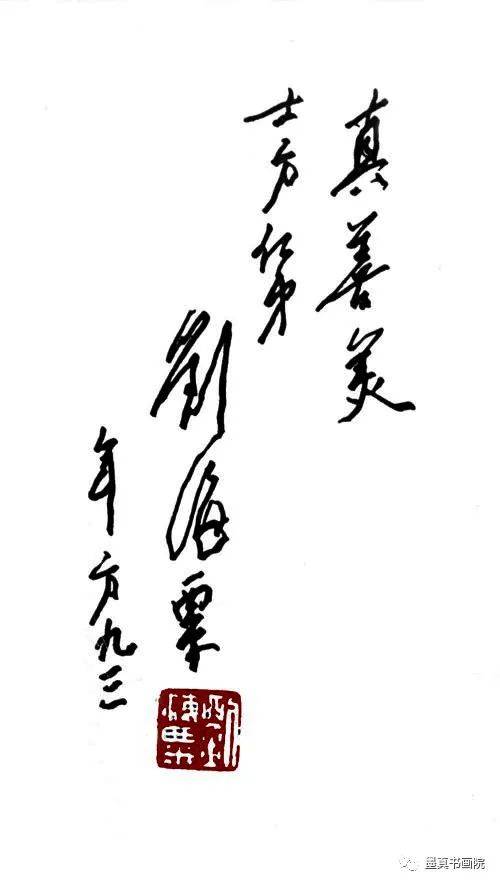 真善美
士方仁弟
劉海粟
年方九三
劉海粟
墨真书画院